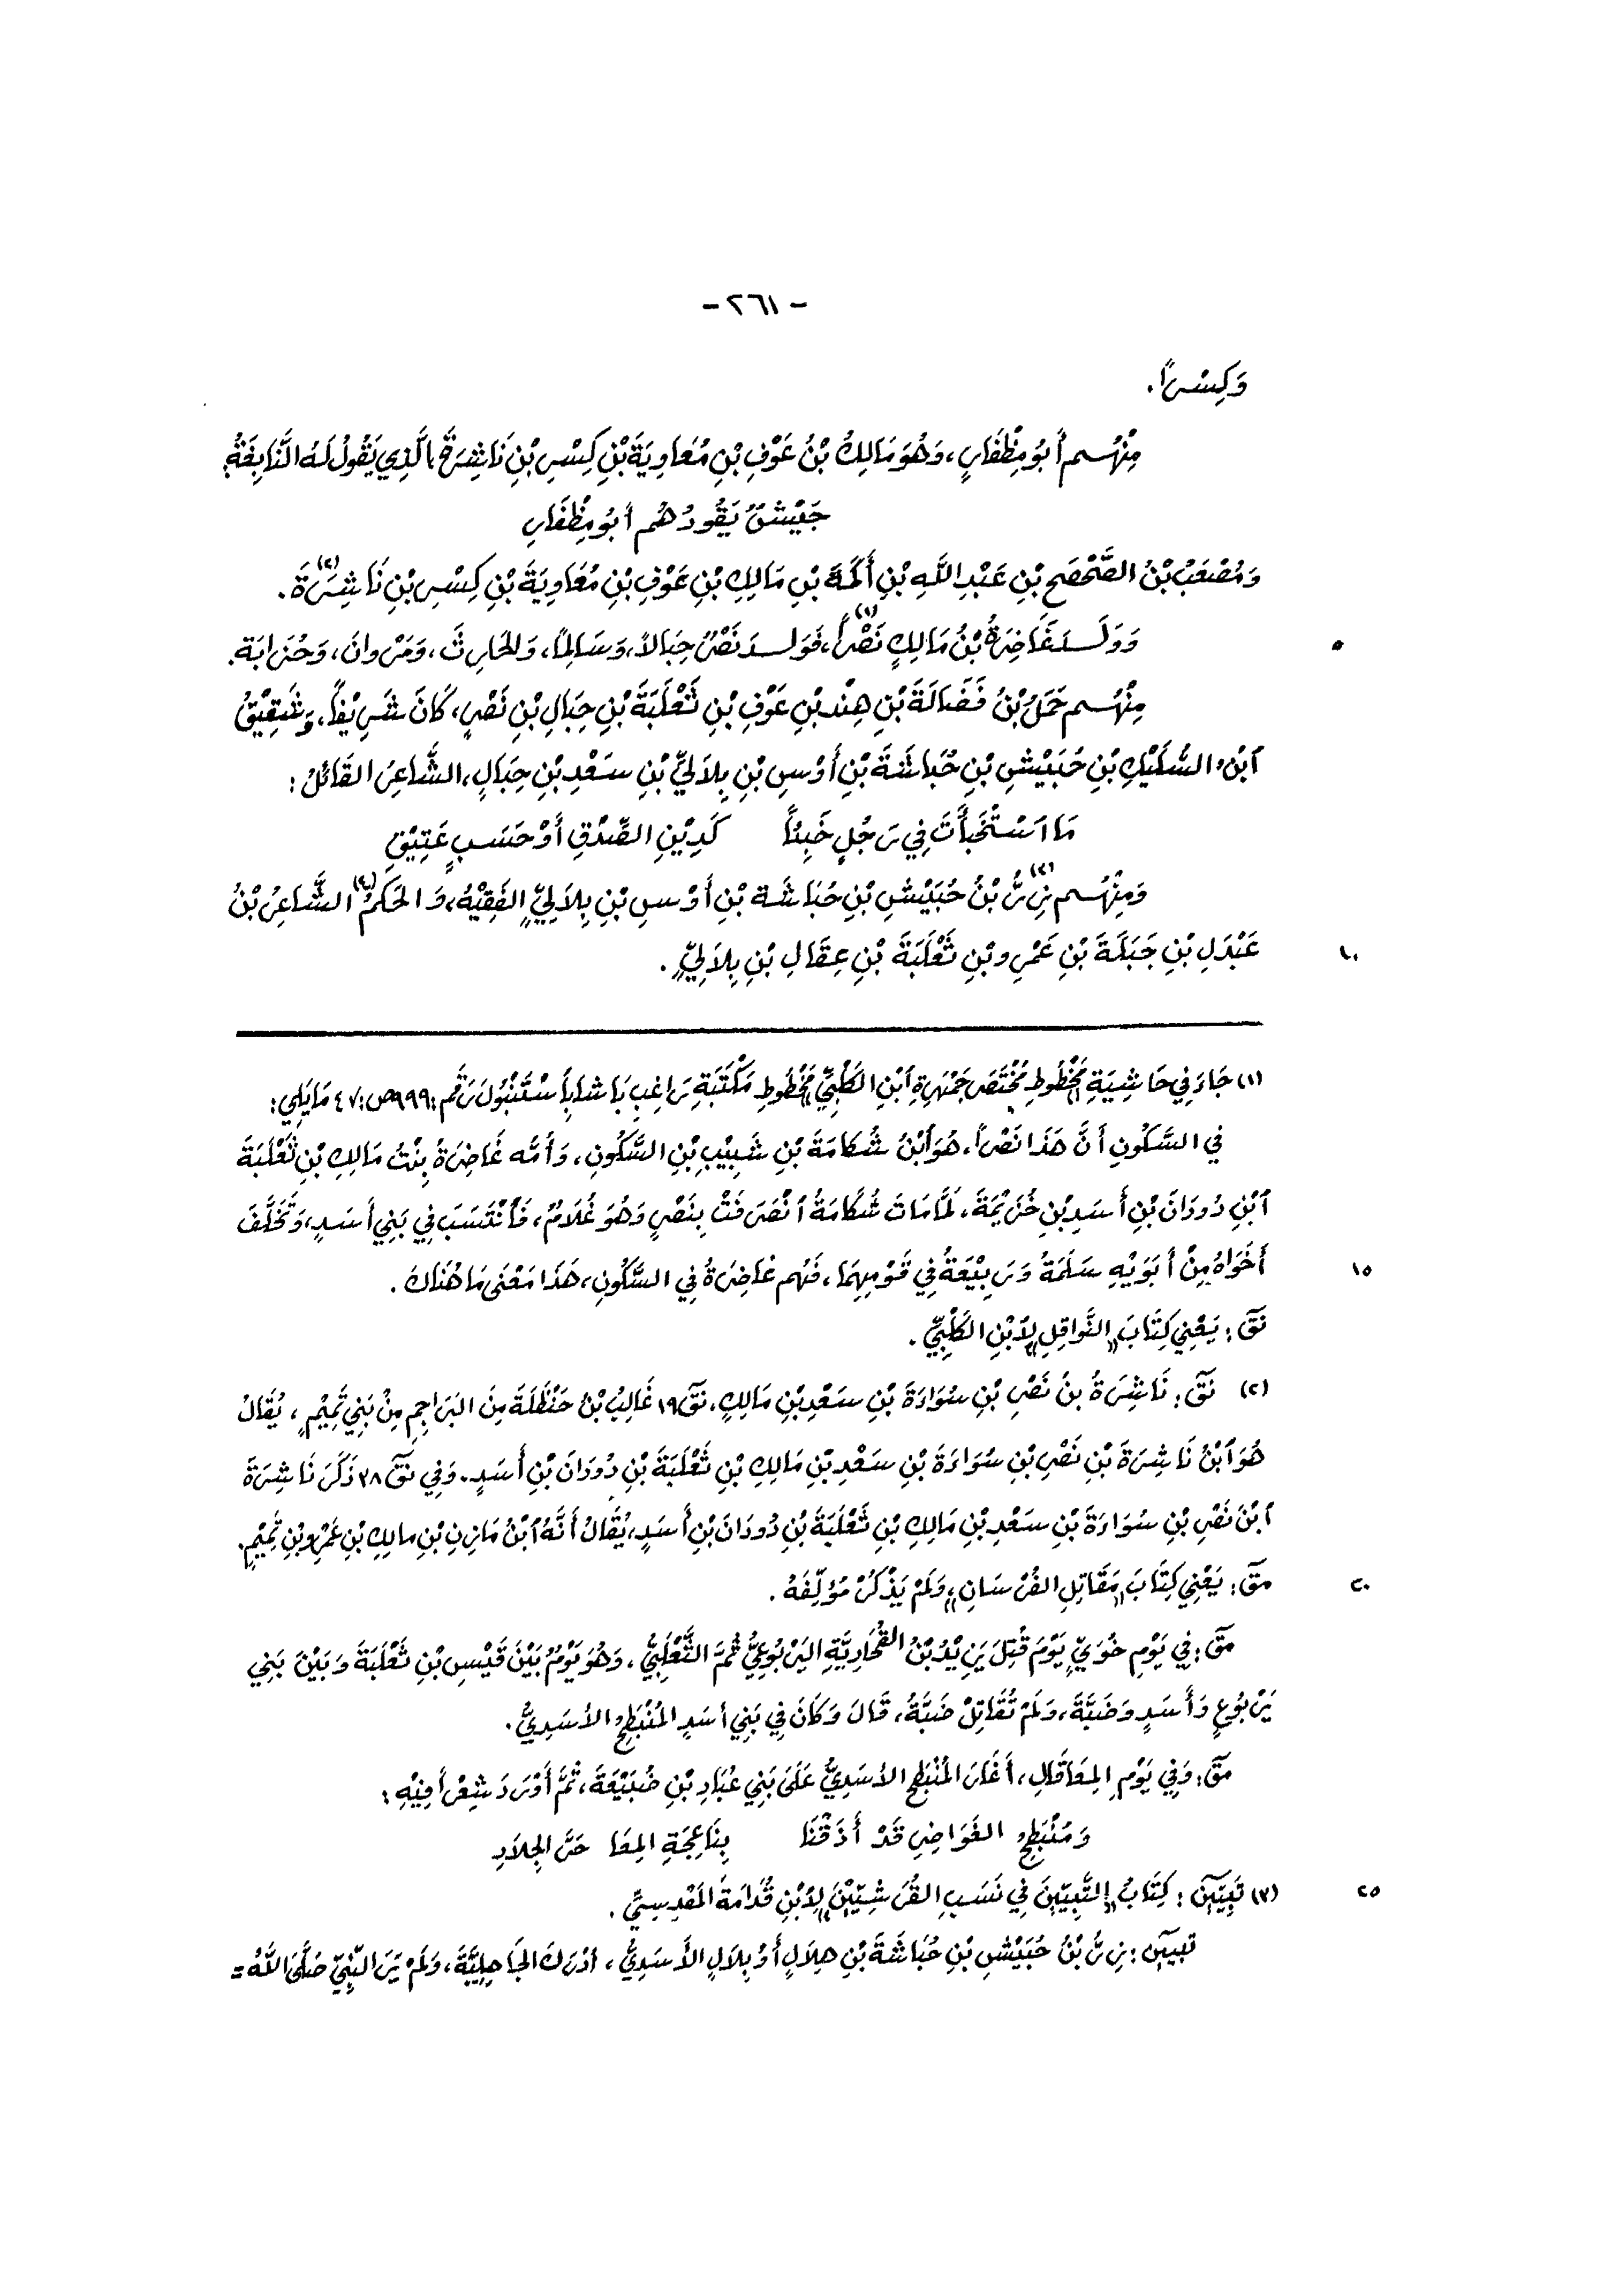 - ٢٦١ -
وَكِسْراً .
مِنْهُم أَبُو مِظْفَارٍ ، وَهُوَ مَالِكُ بْنُ عَوْفِ بْنِ مُعَاوِيَةَ بْنِ كِسْرِ بْنِ نَاشِرَةَ ، الَّذِي يَقُولُ لَهُ النَّابِغَةُ :
جَيْشٌ يَقُودُهُم أَبُو مِظْفَارِ
وَمُصْعَبُ بْنُ الصَّحْصَحِ بْنِ عَبْدِ اللَّهِ بْنِ أَكَمَةَ بْنِ مَالِكِ بْنِ عَوْفِ بْنِ مُعَاوِيَةَ بْنِ كِسْرِ بْنِ نَاشِرَةَ (٢) .
٥ وَوَلَدَ غَاضِرَةُ بْنُ مَالِكٍ نَصْراً (١) ، فَوَلَدَ نَصْرٌ حِبَالاً ، وَسَالِماً ، وَالحَارِثَ ، وَمَرْوانَ ، وَحُزَابَة .
مِنْهُم حَمَلُ بْنُ فَضَالَةَ بْنِ هِنْدِ بْنِ عَوْفِ بْنِ ثَعْلَبَةَ بْنِ حِبَالِ بْنِ نَصْرٍ ، كَانَ شَرِيْفاً ، وَشَقِيْقُ
ٱبْنُ السُّلَيْكِ بْنِ حُبَيْشِ بْنِ حُبَاشَةَ بْنِ أَوْسِ بْنِ بِلاَلِيِّ بْنِ سَعْدِ بْنِ حِبَالٍ ، الشَّاعِرُ القَائلُ :
مَا ٱسْتَخْبَأْتَ فِي رَجُلٍ خَبِئاً كَدِيْنِ الصِّدْقِ أَوْ حَسَبٍ عَتِيْقِ
وَمِنْهُم زِرُّ (٣) بْنُ حُبَيْشِ بْنِ حُبَاشَة بْنِ أَوْسِ بْنِ بِلاَلِيِّ الفَقِيْهُ ، وَالحَكَمُ (٤) الشَّاعِرُ بْنُ
١٠ عَبْدَلِ بْنِ جَبَلَةَ بْنِ عَمْرِو بْنِ ثَعْلَبَةَ بْنِ عِقَالِ بْنِ بِلاَلِيٍّ .
(١) جَاءَ فِي حَاشِيَةِ مَخْطُوطِ مُخْتَصَر جَمْهَرَةِ ٱبْنِ الكَلْبِيِّ مَخْطُوطِ مَكْتَبَةِ رَاغِبِ بَاشا بِاَسْتَنْبُولَ رَقَم : ٩٩٩ ص : ٤٧ مَا يَلِي :
في السَّكُونِ أَنَّ هَذَا نَصْراً ، هُوَ ٱبْنُ شُكامَةَ بْنِ شَبِيْبِ بْنِ السَّكُونِ ، وَأُمُّه غَاضِرَةُ بِنْتُ مَالِكِ بْنِ ثَعْلَبَةَ
ٱبْنِ دُودَانَ بْنِ أَسَدِ بْنِ خُزَيْمَةَ ، لَمَّا مَاتَ شُكَامَةُ ٱنْصَرَفَتْ بِنَصْرٍ وَهُوَ غُلاَمٌ ، فَٱنْتَسَبَ فِي بَنِي أَسَدٍ ، وَتَخَلَّفَ
١٥ أَخَوَاهُ مِنْ أَبَوَيْهِ سَلَمَةُ وَرَبِيْعَةُ فِي قَوْمِهِمَا ، فَهُم غَاضِرَةُ فِي السَّكُونِ ، هَذَا مَعْنَى مَا هُنَاكَ .
نَقَ : يَعْنِي كِتَابَ «النَّوَاقِلِ» لِٱبْنِ الكَلْبِيِّ .
(٢) نَقَ : نَاشِرَةُ بنُ نَصْرِ بْنِ سُوَاءَةَ بْنِ سَعْدِ بْنِ مَالِكٍ ، نَقَ ١٩ غَالِبُ بْنُ حَنْظَلَةَ مِنَ البَرَاجِمِ مِنْ بَنِي تَمِيْمٍ ، يُقَالُ
هُوَ ٱبْنُ نَاشِرَةَ بْنِ نَصْرِ بْنِ سُوَاءَةَ بْنِ سَعْدِ بْنِ مَالِكِ بْنِ ثَعْلَبَةَ بْنِ دُودَانَ بْنِ أَسَدٍ . وَفِي نَقَ ٣٨ ذَكَرَ نَاشِرَةَ
ٱبْنَ نَصْرِ بْنِ سُوَاءَةَ بْنِ سَعْدِ بْنِ مَالِكِ بْنِ ثَعْلَبَةَ بْنِ دُودَانَ بْنِ أَسَدٍ ، يُقَالُ أَنَّهُ ٱبْنُ مَازِنِ بْنِ مالِكِ بْنِ عَمْرِو بْنِ تَمِيْمٍ .
٢٠ مَقَ : يَعْنِي كِتَابَ «مَقَاتِلِ الفُرْسَانِ» وَلَمْ يَذْكُرْ مُؤَلِّفَهُ .
مَقَ : فِي يَوْمِ خُوَيٍّ يَوْمَ قُتِلَ يَزِيْدُ بْنُ القُحَادِيَّةِ اليَرْبُوعِيُّ ثُمَّ الثَّعْلَبِيُّ ، وَهُوَ يَوْمٌ بَيْنَ قَيْسِ بْنِ ثَعْلَبَةَ وَبَيْنَ بَنِي
يَرْبُوعٍ وَأَسَدٍ وَضَبَّةَ ، وَلَمْ تُقَاتِلْ ضَبَّةُ ، قَالَ وَكَانَ فِي بَنِي أسَدٍ المُنْبَطِحُ الأسَدِيُّ .
مَقَ : وَفِي يَوْمِ المِعَا قَالَ ، أَغَارَ المُنْبَطِحُ الأَسَدِيُّ عَلَى بَنِي عُبَادِ بْنِ ضُبَيْعَةَ ، ثُمَّ أَوْرَدَ شِعْراً فِيْهِ :
وَمُنْبَطِحُ الغَوَاضِرِ قَدْ أَذَقْنَا بِنَاعِجَةِ المِعَا حَرَّ الجِلاَدِ
٢٥ (٣) تَبِيَين : كِتَابُ «التَّبِيَّيْنِ فِي نَسَبِ القُرَشِيِّيْنَ» لِٱبْنِ قُدَامَةَ المَقْدِسِيِّ .
تبيين : زِرُّ بْنُ حُبَيْشِ بْنِ حُبَاشَةَ بْنِ هِلاَلٍ أَوْ بِلاَلٍ الأَسَدِيُّ ، أدْرَكَ الجَاهِلِيَّةَ ، وَلَمْ يَرَ النَّبِيَّ صَلَّى اللَّهُ =